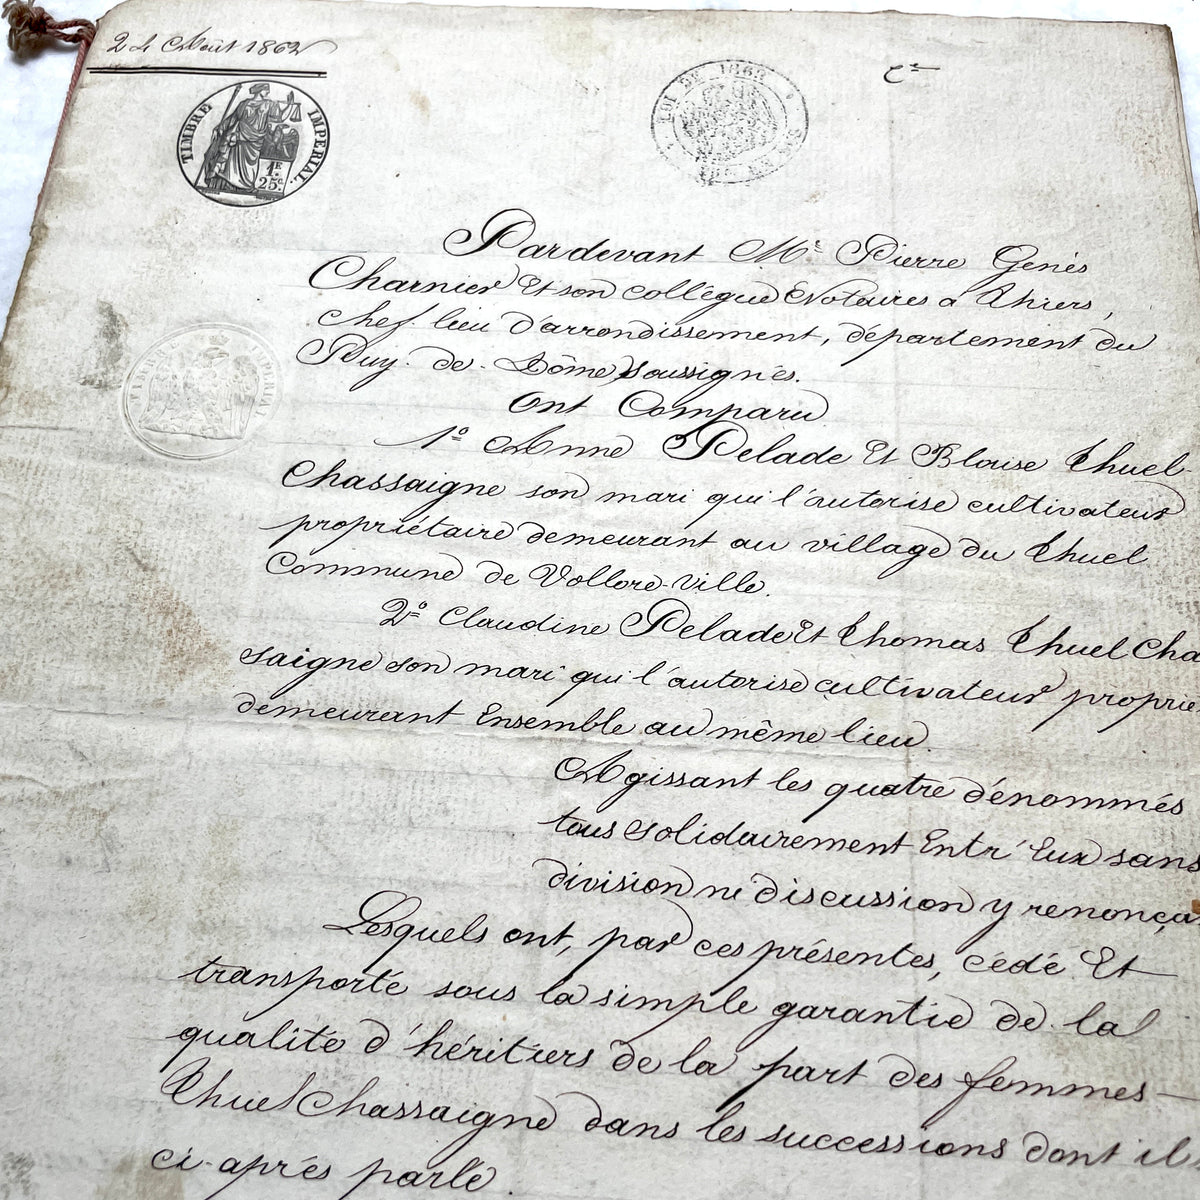 24 Août 1862
TIMBRE IMPERIAL.
1F
25c
LOI DE 1862
Pardevant Me Pierre Genès
Charnier Et son collègue Notaires a Thiers,
chef. lieu d'arrondissement, département du
Puy. de. Dôme soussignés.
Ont Comparu
1o Anne Pelade Et Blaise Thuel
Chassaigne son mari qui l'autorise cultivateur
propriétaire demeurant au village du Thuel
Commune de Vollore-Ville.
2o Claudine Pelade Et Thomas Thuel Cha
saigne son mari qui l'autorise cultivateur proprié
demeurant Ensemble au même lieu.
Agissant les quatre dénommés
tous solidairement Entr'Eux sans
division ni discussion y renonça
Lesquels ont, par ces présentes, cédé Et
transporté sous la simple garantie de la
qualité d'héritiers de la part des femmes
Thuel Chassaigne dans les successions dont il
ci-après parlé.